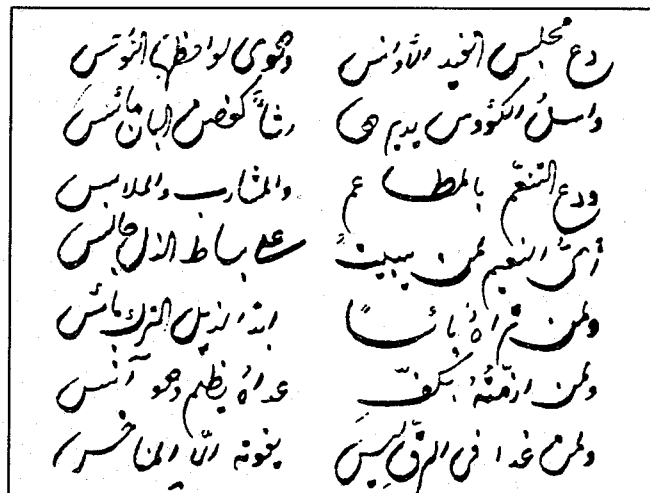 دع مجلس الغيد الأوانس وهوى لواحظها النواعس
واسلُ الكؤوس يديرها رشأً كغصن البان مائس
ودع التنعّم بالمطاعم والمشارب والملابس
أيُّ النعيم لمن يبيتُ على بساط الذل جالس
ولمن تراهُ بائساً أبدا لذيل الترك بائس
ولمن ازمّتهُ بكفّ عداهُ يظلم وهو آنس
ولمن غدا في الرقّ ليس يفوته إلّا المناخس